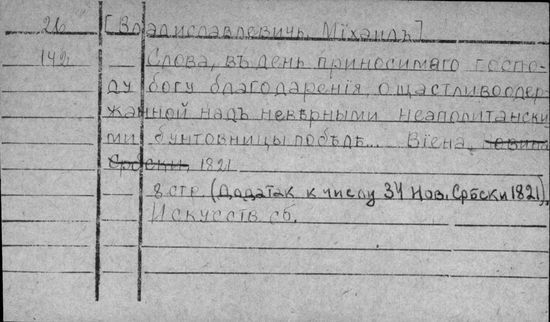 26 [Владиславлевичь, Міхаилъ]
142 Слова, въ день приносимаго госпо-
ду богу благодаренія, о щастливоодер-
жанной надъ невѣрными неаполитански
ми бунтовницы побѣдѣ... Віена,
Србски, 1821.
8 стр. (Додатак к числу 34 Нов. Србски 1821).
Искусств. сб.